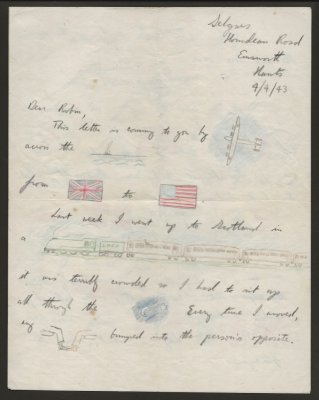 Selyses
Horndean Road
Emsworth
Hants
9/4/43
Dear Robin,
This letter is coming to you by
across the
from to
Last week I went up to Scotland in
a
it was terribly crowded so I had to sit up
all through the Every time I moved,
my bumped into the person's opposite.